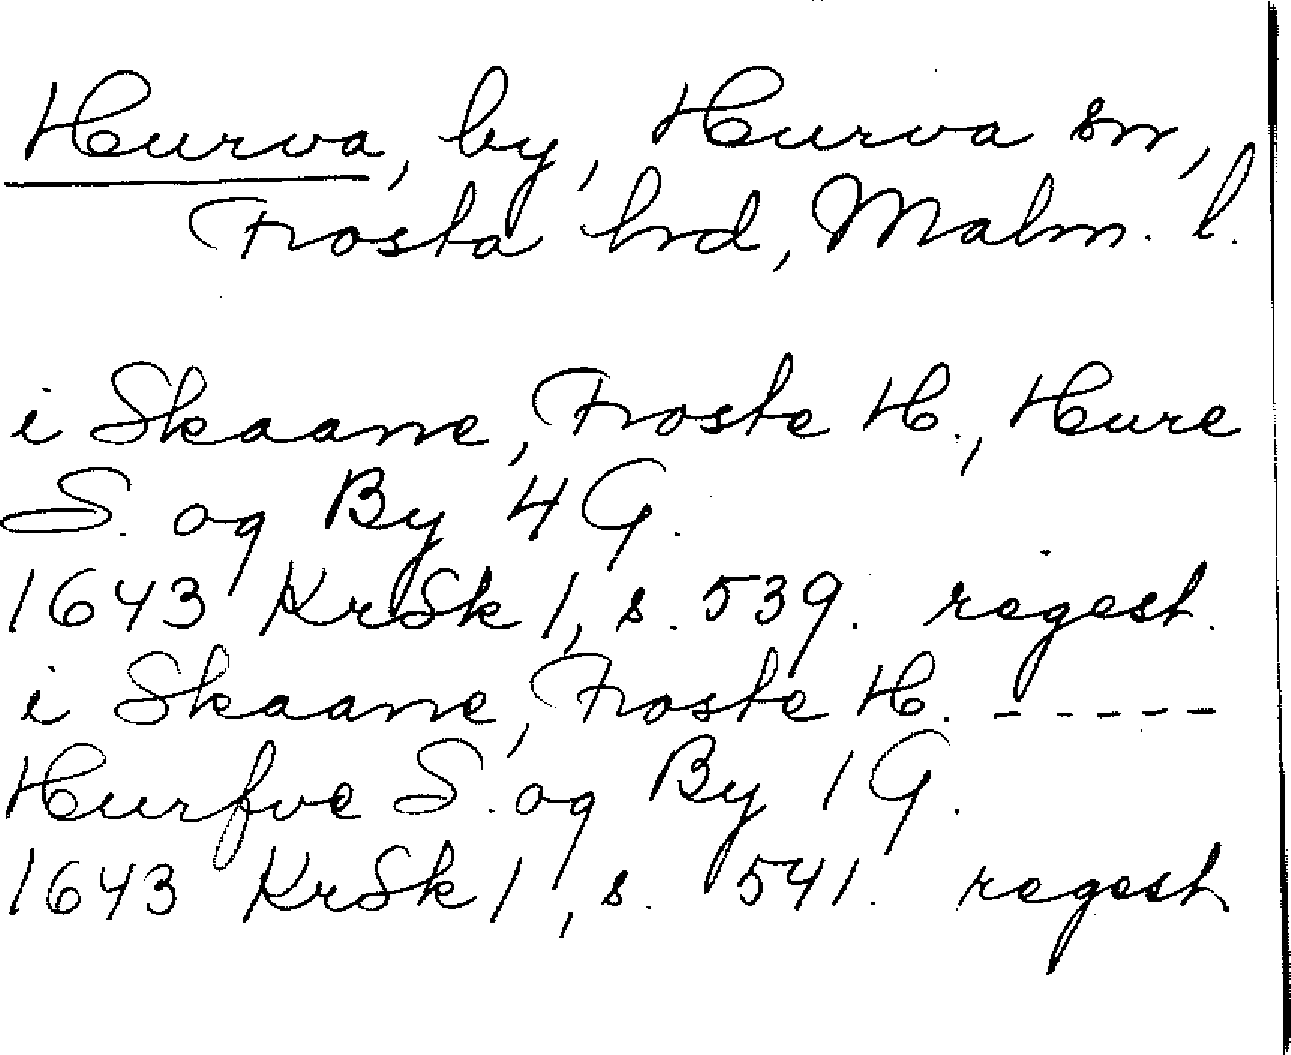 Hurva, by, Hurva sn,
Frosta hrd, Malm. l.
i Skaane, Froste H., Hure
S. og By 4 G.
1643 KrSk 1, s. 539. regest.
i Skaane, Froste H. - - - - -
Hurfve S. og By 1 G.
1643 KrSk 1, s. 541. regest